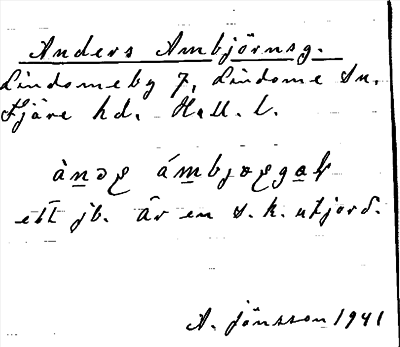 Anders Ambjörnsg.
Lindomeby 7, Lindome Sn.
Fjäre hd. Hall. l.
ett jb. är en s.k. utjord.
A. Jönsson 1941